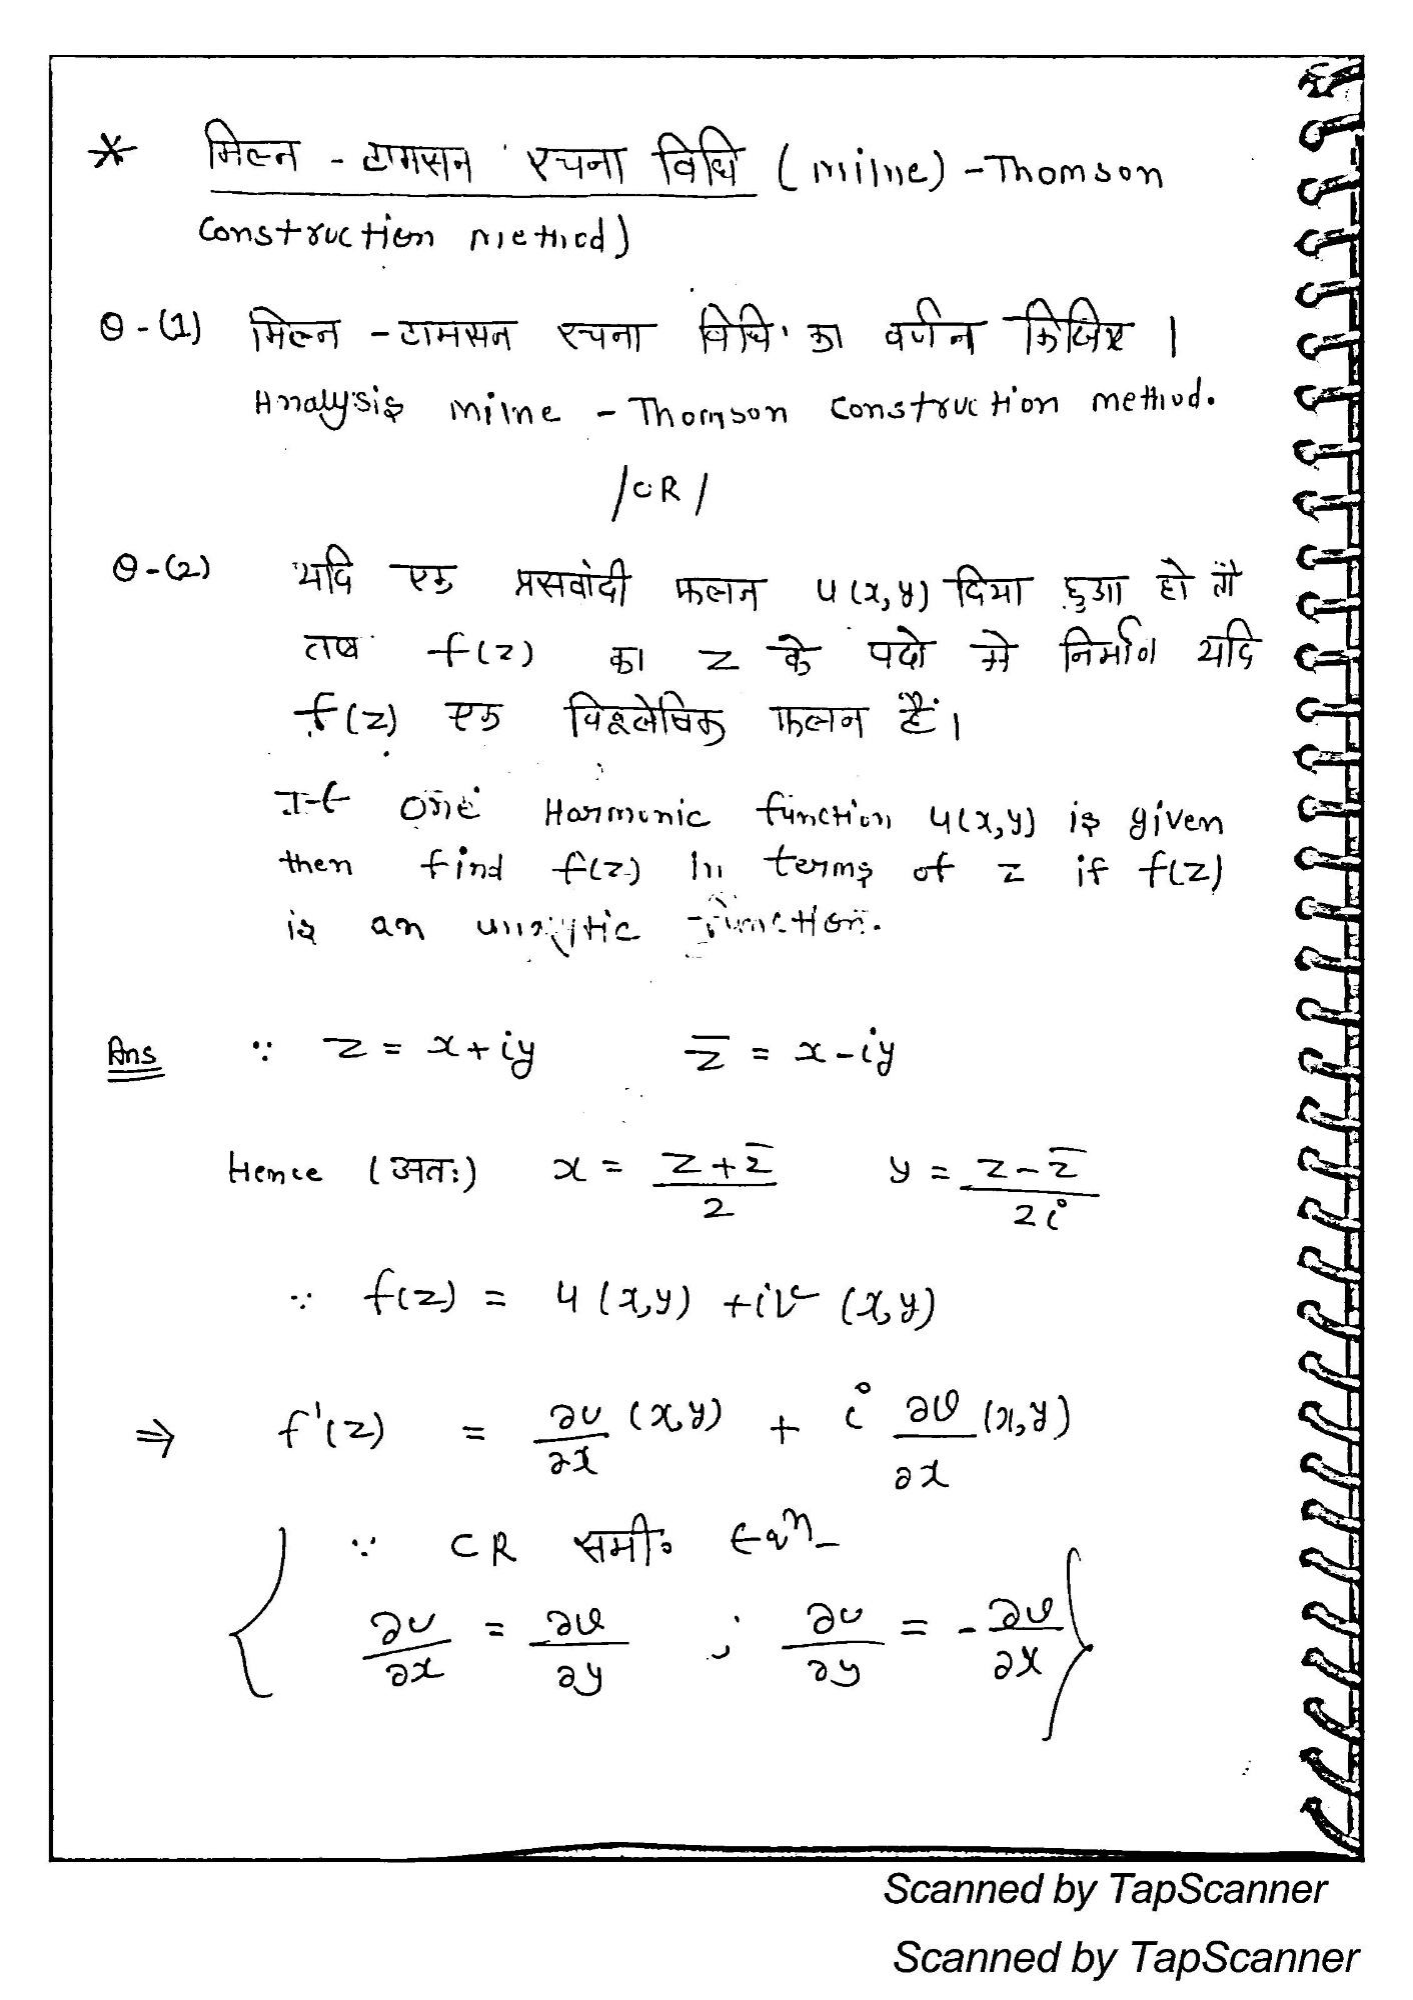 * मिल्न - टामसन रचना विधि ( milne) - Thomson
Construction method)
Q-(1) मिल्न - टामसन रचना विधि का वर्णन किजिए ।
Analysis milne - Thomson Construction method.
/OR/
Q-(2) यदि एक प्रसवादी फलन u(x,y) दिया हुआ हो तो
तब f(z) का z के पदो मे निर्माण यदि
f(z) एक विश्लेषिक फलन हैं।
If one Harmonic function u(x,y) is given
then find f(z) in terms of z if f(z)
is an analytic function.
Ans ∵ z = x+iy z̄ = x-iy
Hence (अतः) x = (z+z̄)/2 y = (z-z̄)/2i
∵ f(z) = u(x,y) + iv(x,y)
⇒ f'(z) = ∂u/∂x (x,y) + i ∂v/∂x (x,y)
{ ∵ CR समी० Eqn
∂u/∂x = ∂v/∂y ; ∂u/∂y = -∂v/∂x }
Scanned by TapScanner
Scanned by TapScanner